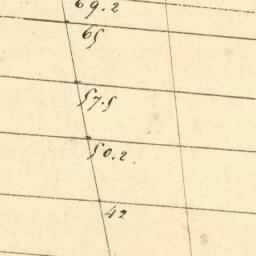 69.2
65
57.5
50.2.
42